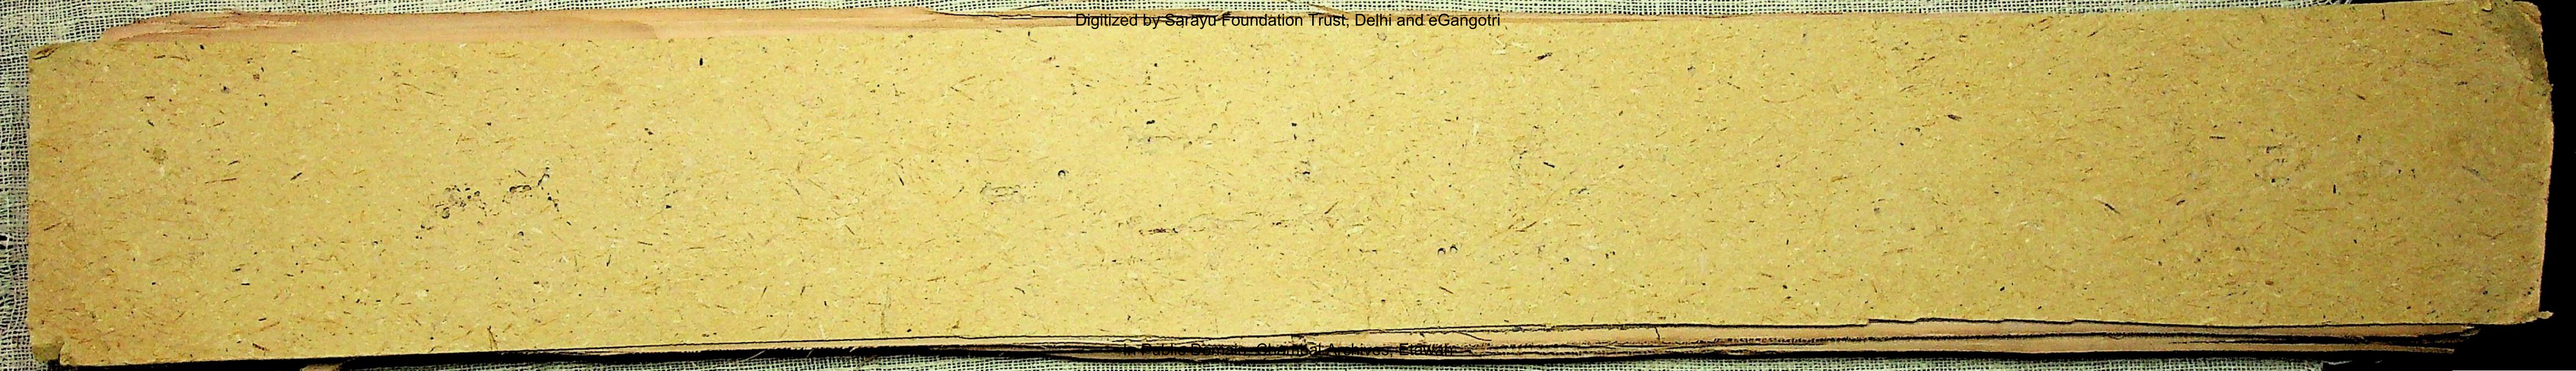 Digitized by Sarayu Foundation Trust, Delhi and eGangotri
In Public Domain, Chambal Archives, Etawah